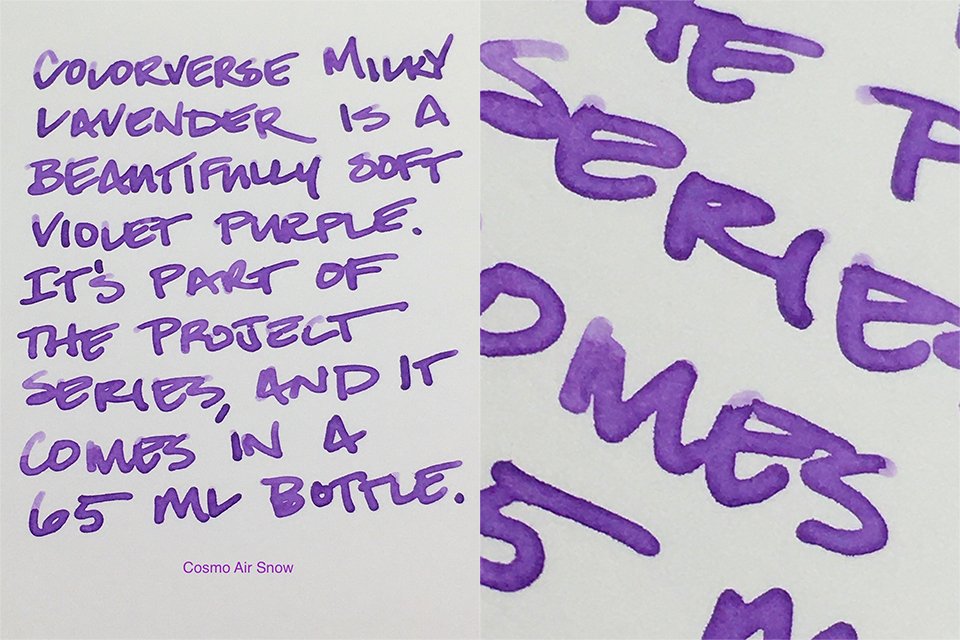 COLORVERSE MILKY
LAVENDER IS A
BEAUTIFULLY SOFT
VIOLET PURPLE.
IT'S PART OF
THE PROJECT
SERIES, AND IT
COMES IN A
65 ML BOTTLE.
Cosmo Air Snow
HE
SERIES
OMES
5